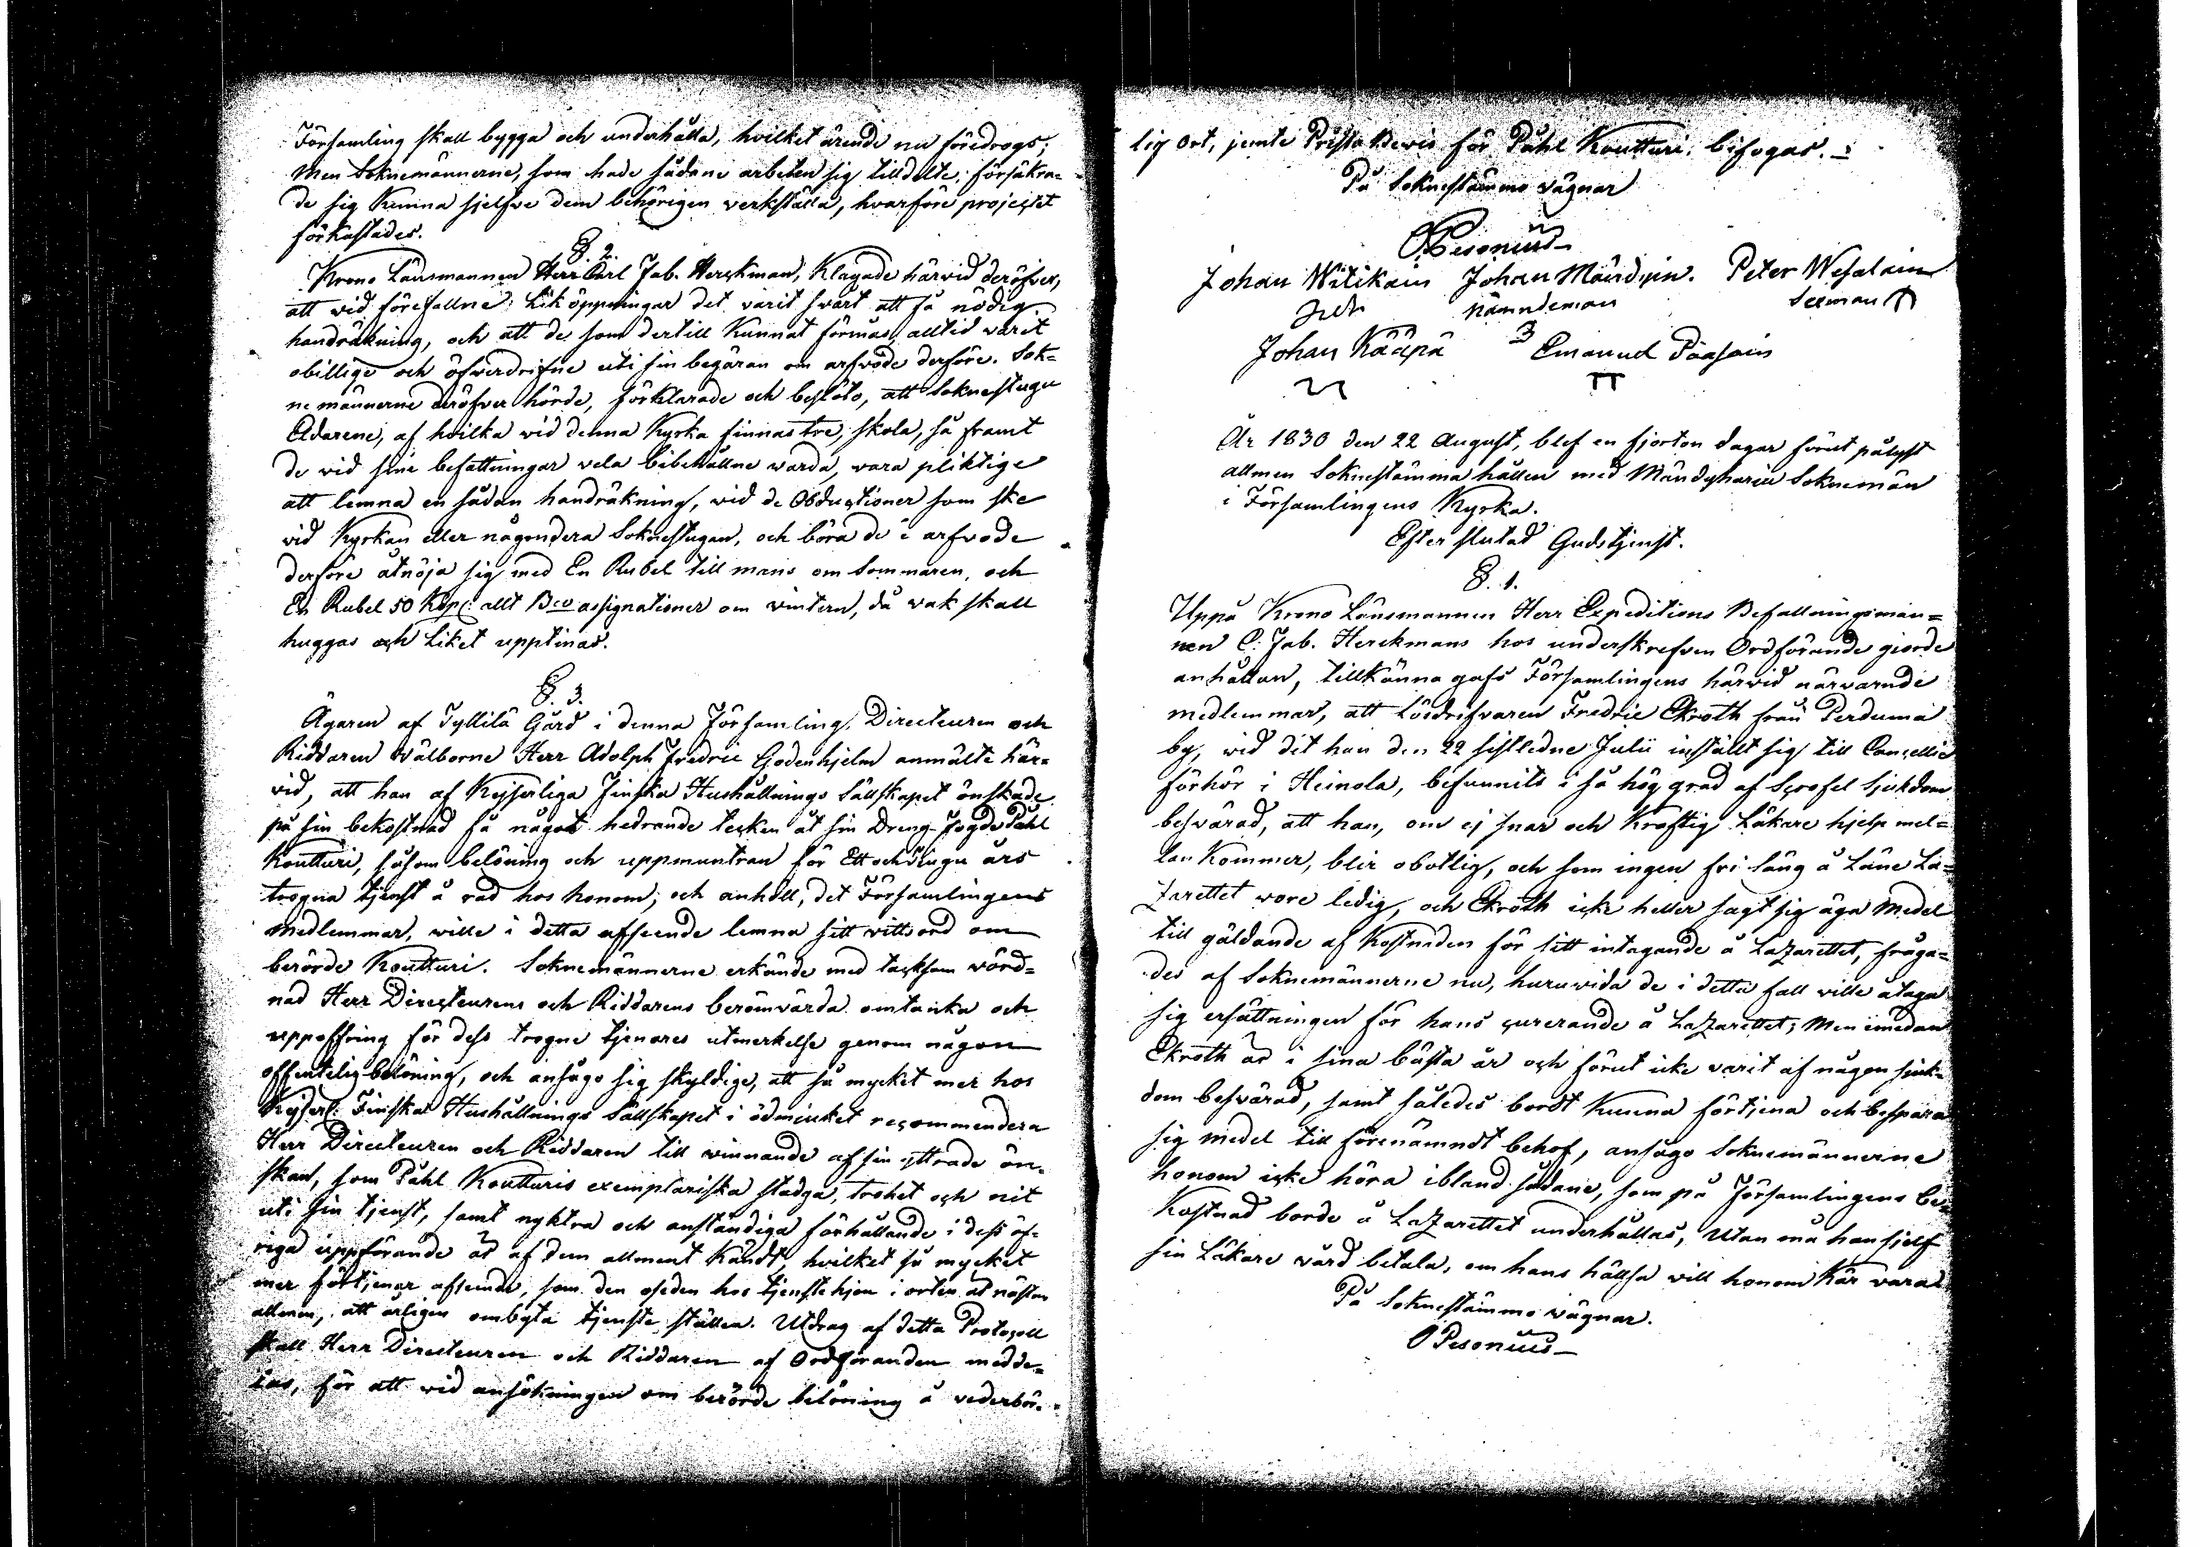 Församling skall bygga och underhålla, hvilket ärende nu föredrogs;
Men Soknemännerne, som hade sådane arbeten sig tilldelte, försäkra-
de sig kunna sjelfve dem behörigen verkställa, hvarföre projectet
förkastades.
§. 2.
Krono Länsmannen Herr Carl Jab. Herckman, Klagade härvid deröfver,
att vid förefallne Lik öppningar det varit svårt att få nödig
handräkning, och att de som dertill kunnat förmås, alltid varit
obillige och öfverdrifne uti sin begäran om arfvode derföre. Sok-
nemännerne deröfver hörde, förklarade och beslöto, att Soknestugu
Adarene, af hvilka vid denna Kyrka finnas tre, skola, så framt
de vid sine befattningar vela bibehållne varda, vara pliktige
att lemna en sådan handräkning, vid de Obductioner som ske
vid Kyrkan eller någondera Soknestugan, och böra de i arfvode
derföre åtnöja sig med En Rubel till mans om Sommaren, och
En Rubel 50 Kop: allt Bco assignationer om vintern, då vak skall
huggas och Liket upptinas.
§. 3.
Ägaren af Tyllilä Gård i denna Församling, Directeuren och
Riddaren Välborne Herr Adolph Fredric Godenhjelm anmälte här-
vid, att han af Kejserliga Finska Hushållnings Sällskapet önskade
på sin bekostnad få något hedrande tecken åt sin Dreng-Fogde Påhl
Koutturi, såsom belöning och uppmuntran för Ett och tjugu års
trogna tjenst å rad hos honom; och anhöll, det Församlingens
Medlemmar, wille i detta afseende lemna sitt vittsord om
berörde Koutturi. Soknemännerne erkände med tacksam vörd-
nad Herr Directeurens och Riddarens berömvärda omtanka och
uppoffring för dess trogne tjenares utmerkelse genom någon
offentelig belöning, och ansågo sig skyldige, att så mycket mer hos
Kejserl: Finska Hushållnings Sällskapet i ödmjukhet recommendera
Herr Directeuren och Riddaren till vinnande af sin yttrade ön-
skan, som Påhl Koutturis exemplariska stadga, trohet och nit
uti sin tjenst, samt nyktra och anständiga förhållande i dess öf-
riga uppförande är af dem allment kändt, hvilket så mycket
mer förtjenar afseende, som den oseden hos tjenstehjon i orten är nästan
allmen, att årligen ombyta tjenste ställen. Utdrag af detta Protocoll
skall Herr Directeuren och Riddaren af Ordföranden medde-
las, för att vid ansökningen om berörde belöning å vederbör-
lig Ort, jemte Presta Bevis för Påhl Koutturi, bifogas.
På Soknestämmo vägnar
O Pesonius
Johan Witikain Johan Mård,in. Peter Wesalain
nämndeman Sexman
Johan Kääpä Emanuel Pöasain
År 1830 den 22 August, blef en fjorton dagar förut pålyst
allmen Soknestämma hållen med Mändyharju Soknemän
i Församlingens Kyrka.
Efter slutad Gudstjenst.
§. 1.
Uppå Krono Länsmannen Herr Expeditions Befallningsman-
nen C. Jab. Herckmans hos underskrefven Ordförande gjorde
anhållan, tillkänna gafs Församlingens härvid närvarande
medlemmar, att Lösdrifvaren Fredric Ekroth från Perduma
by, vid det han den 22 sistledne Julii inställt sig till Cancellie
förhör i Heinola, befunnits i så hög grad af Scrofel sjukdom
besvärad, att han, om ej snar och kraftig Läkare hjelp mel-
lan kommer, blir obotlig, och som ingen fri säng å Läne La-
zarettet vore ledig, och Ekroth icke heller sagt sig äga Medel
till gäldande af Kostnaden för sitt intagande å Lazarettet, fråga-
des af Soknemännerne nu, huruvida de i detta fall ville åtaga
sig ersättningen för hans curerande å Lazarettet; Men emedan
Ekroth är i sina bästa år och förut icke varit af någon sjuk-
dom besvärad, samt således bordt kunna förtjena och bespara
sig medel till förenämndt behof, ansågo Soknemännerne
honom icke höra ibland sådane, som på Församlingens be-
kostnad borde å Lazarettet underhållas, Utan må han sjelf
sin Läkare vård betala, om hans hällsa will honom kär vara.
På Soknestämmo vägnar.
O Pesonius